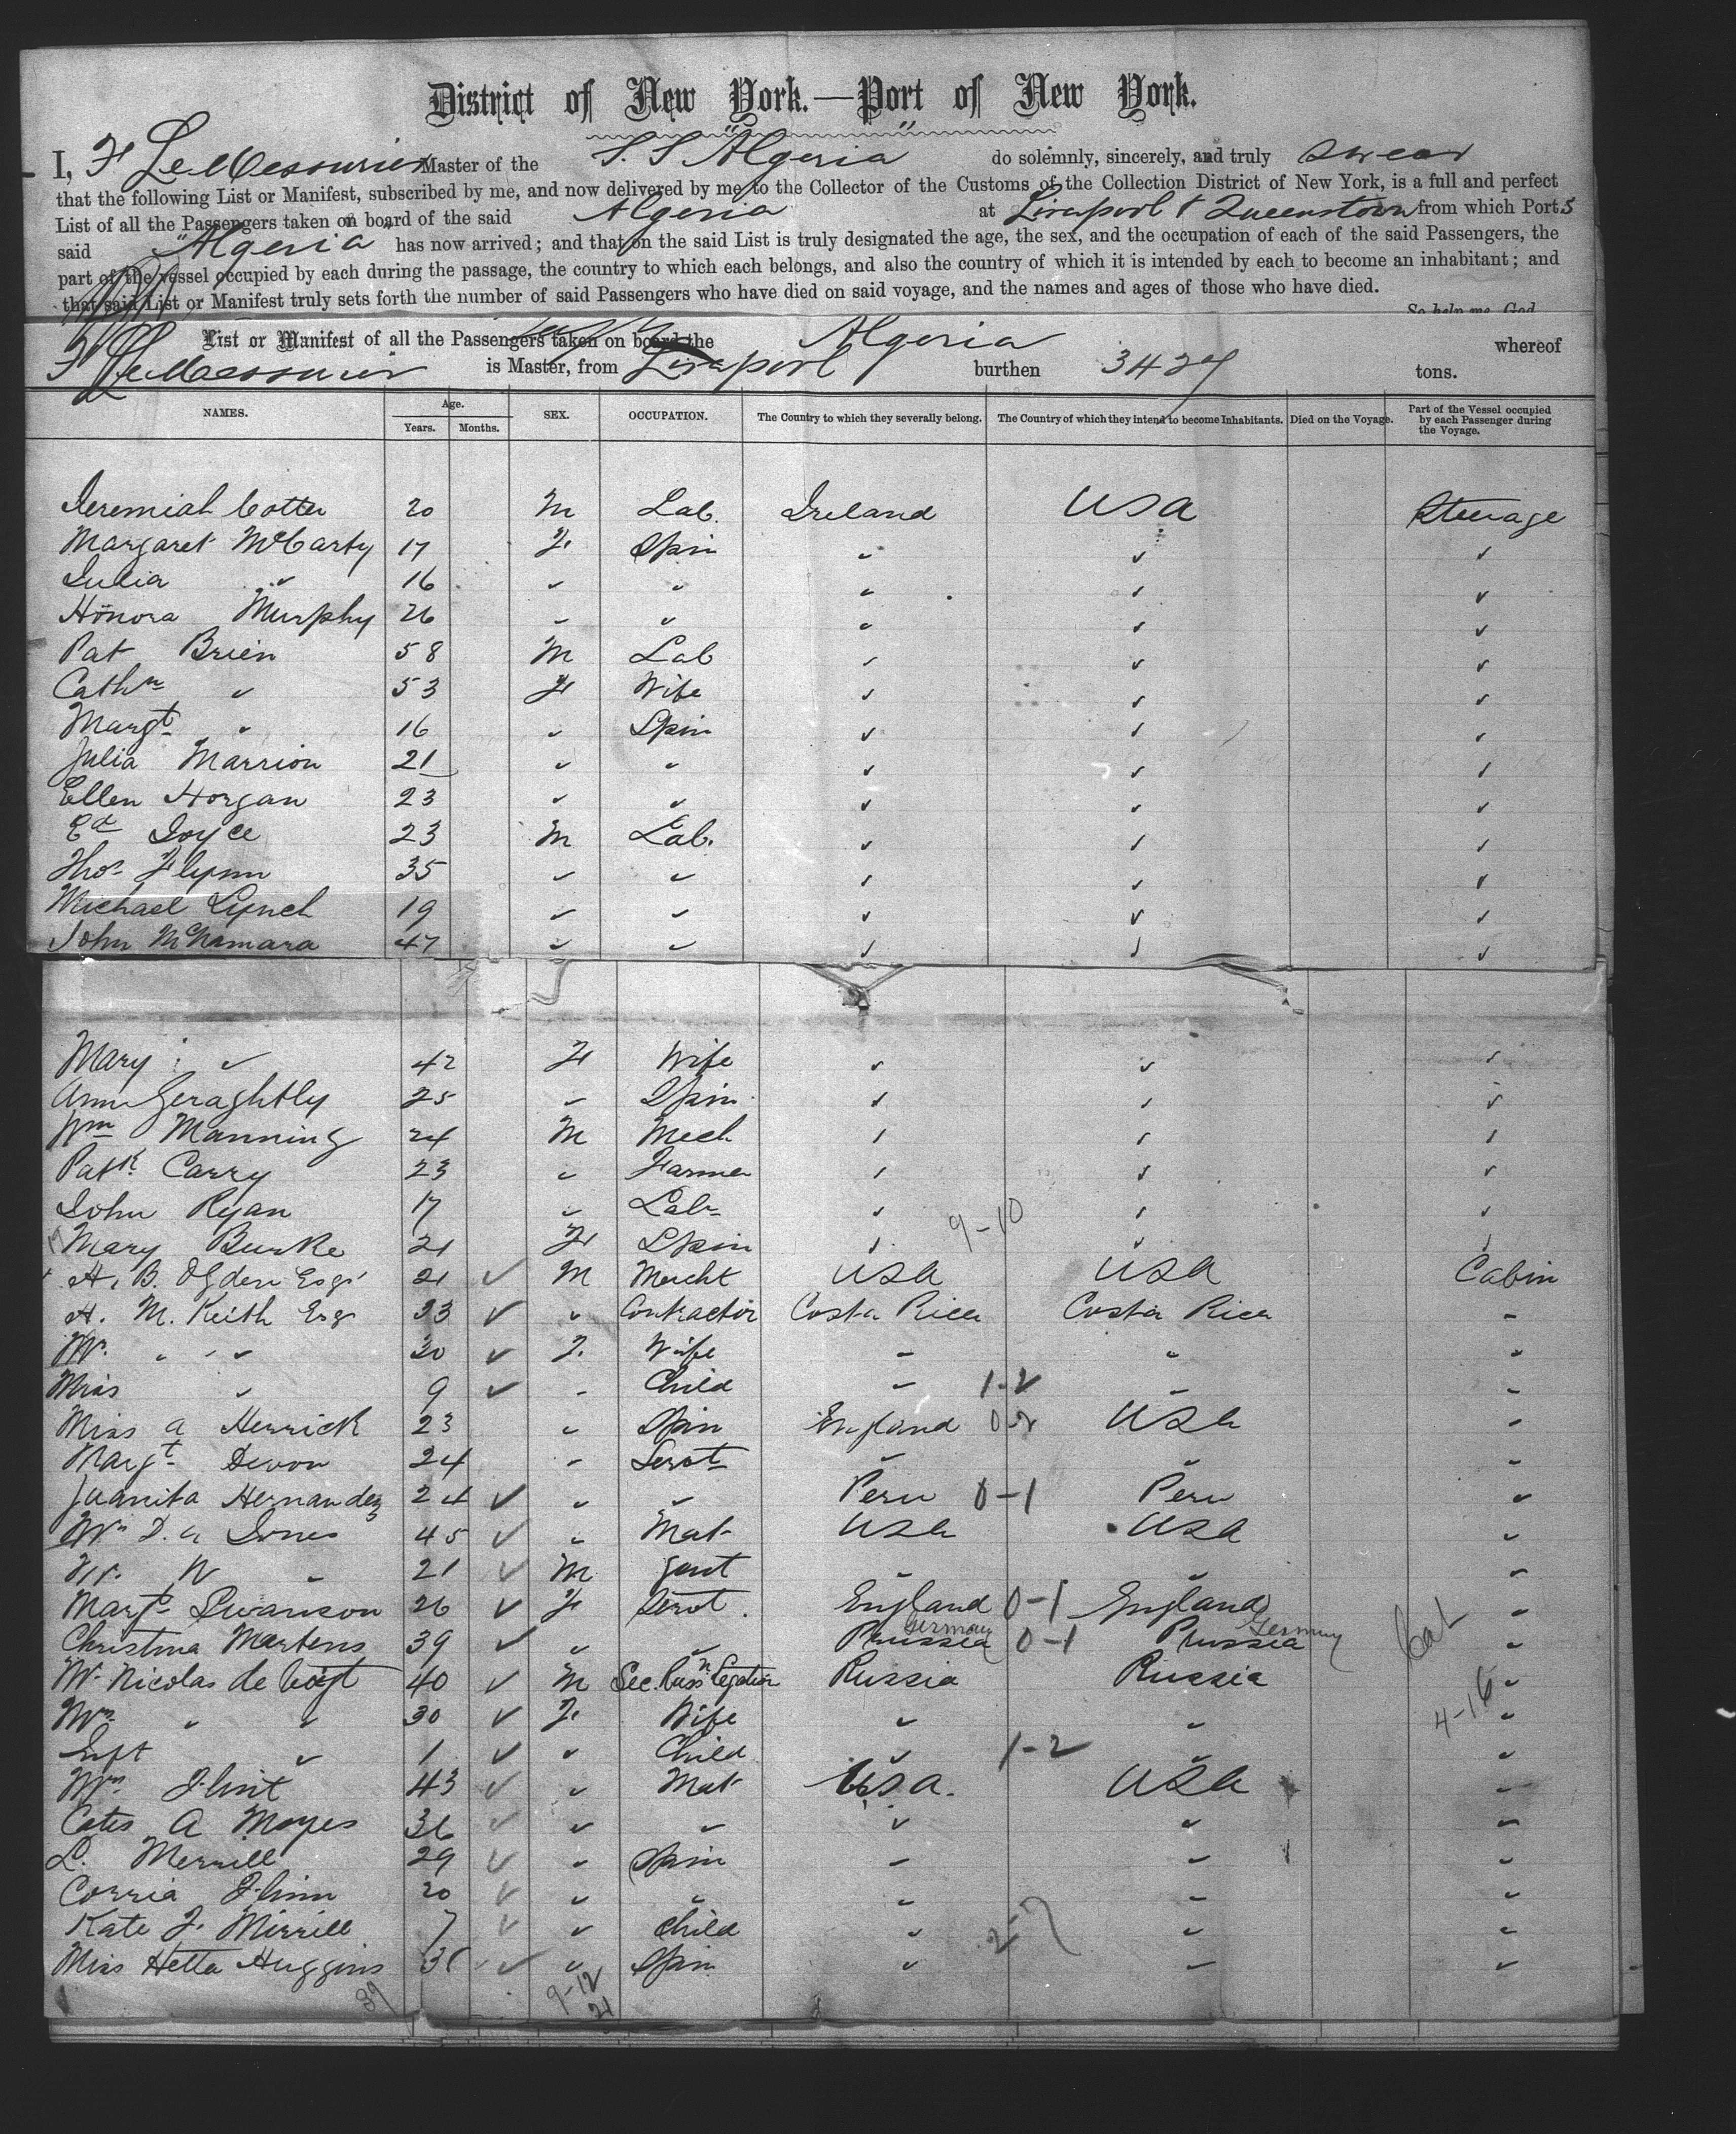 District of New York.—Port of New York.
I, F LeMessurier Master of the S. S "Algeria" do solemnly, sincerely, and truly swear
that the following List or Manifest, subscribed by me, and now delivered by me to the Collector of the Customs of the Collection District of New York, is a full and perfect
List of all the Passengers taken on board of the said Algeria at Liverpool & Queenstown from which Ports
said "Algeria" has now arrived; and that on the said List is truly designated the age, the sex, and the occupation of each of the said Passengers, the
part of the vessel occupied by each during the passage, the country to which each belongs, and also the country of which it is intended by each to become an inhabitant; and
that said List or Manifest truly sets forth the number of said Passengers who have died on said voyage, and the names and ages of those who have died.
So help me God
List or Manifest of all the Passengers taken on board the Algeria whereof
F LeMessurier is Master, from Liverpool burthen 3429 tons.
NAMES. Age. Years. Months. SEX. OCCUPATION. The Country to which they severally belong. The Country of which they intend to become Inhabitants. Died on the Voyage. Part of the Vessel occupied by each Passenger during the Voyage.
Jeremiah Cotter 20 M Lab. Ireland USA Steerage
Margaret McCarty 17 F Spin
Julia " 16 " "
Honora Murphy 26 " "
Pat Brien 58 M Lab
Cathn " 53 F Wife
Margt " 16 " Spin
Julia Marrion 21 " "
Ellen Horgan 23 " "
Ed Joyce 23 M Lab.
Thos Flynn 35 " "
Michael Lynch 19 " "
John McNamara 47 " "
Mary " 42 F Wife
Ann Geraghtly 25 " Spin
Wm Manning 24 M Mech
Patk Carry 23 " Farmer
John Ryan 17 " Lab 9-10
Mary Burke 21 F Spin
H. B. Ogden Esqr 21 M Mercht USA USA Cabin
H. M. Keith Esq 33 " Contractor Costa Rica Costa Rica "
" " 30 F. Wife " " "
Miss " 9 " Child " 1-2 " "
Miss A Herrick 23 " Spin England 0-2 USA "
Margt Devon 24 " Servt " " "
Juanita Hernandez 24 " " Peru 0-1 Peru "
Mrs D. A Jones 45 " Mat USA USA "
W " 21 M Gent " " "
Margt Swanson 26 F Servt. England 0-1 England "
Christina Martens 39 " " Prussia Germany 0-1 Prussia Germany "
Mr Nicolas de Voigt 40 M Sec. Russn Legation Russia Russia "
Mrs " " 30 F Wife " " 4-16 "
Inft " 1 " Child " 1-2 " "
Mrs Flint 43 " Mat USA. USA "
Cates A Moyes 36 " " " " "
L. Merrill 29 " Spin " " "
Corria Flinn 20 " " " " "
Kate F. Mirrill 7 " Child " 2-7 " "
Miss Hetta Huggins " Spin " " "
39 9-12
21